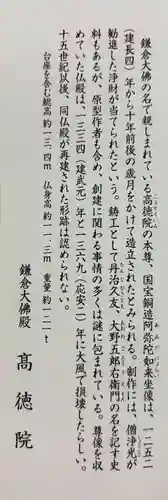 鎌倉大佛の名で親しまれている高徳院の本尊、国宝銅造阿弥陀如来坐像は、一二五二
（建長四）年から十年前後の歳月をかけて造立されたとみられる。制作には、僧浄光が
勧進した浄財が当てられたという。鋳工として丹治久友、大野五郎右衛門の名を記す史
料もあるが、原型作者も含め、創建に関わる事情の多くは謎に包まれている。尊像を収
めていた仏殿は、一三三四（建武元）年と一三六九（応安二）年に大風で損壊したらしい。
十五世紀以後、同仏殿が再建された形跡は認められない。
台座を含む総高 約一三．四ｍ 仏身高 約一一．三ｍ 重量 約一二一ｔ
鎌倉大佛殿
高徳院